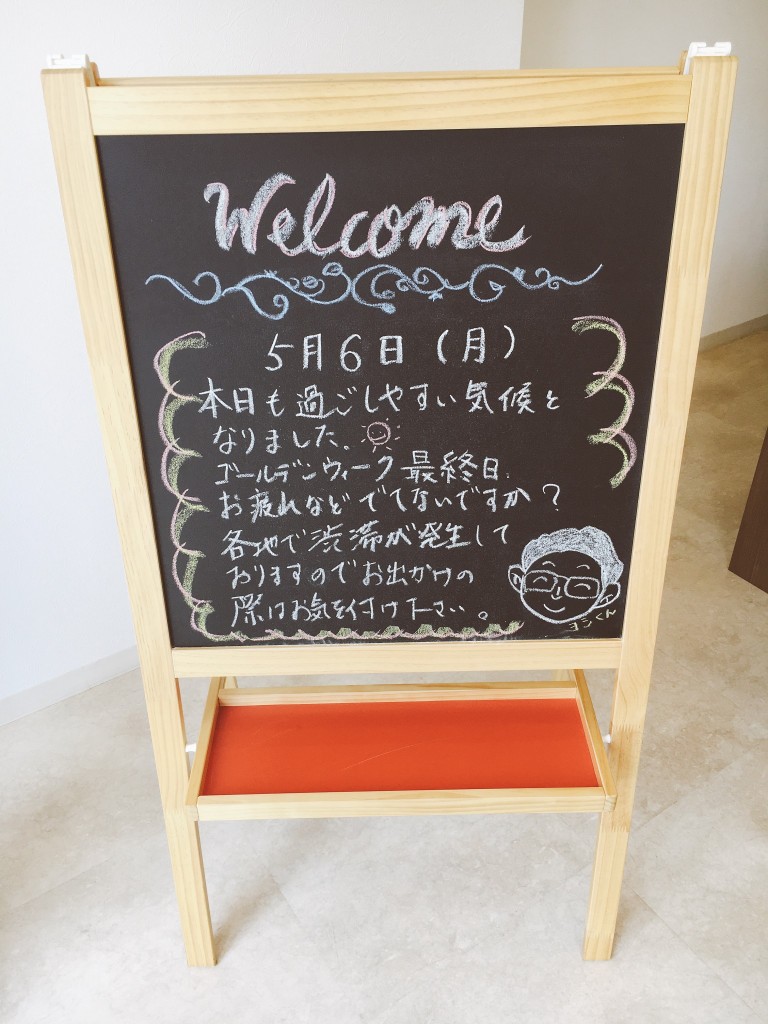 Welcome
5月6日(月)
本日も過ごしやすい気候と
なりました。
ゴールデンウィーク最終日、
お疲れなどでてないですか?
各地で渋滞が発生して
おりますのでお出かけの
際はお気を付け下さい。
ヨシくん